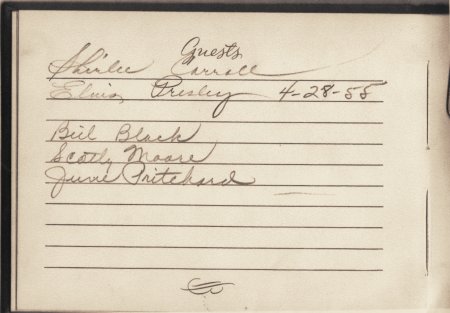 Guests
Shirlee Carroll
Elvis Presley 4-28-55
Bill Black
Scotty Moore
June Pritchard